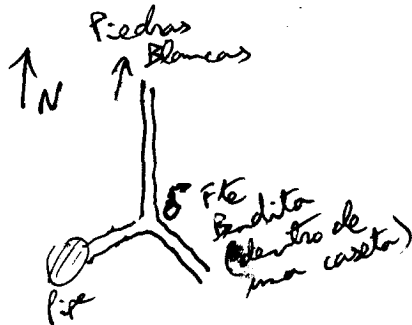 Piedras
Blancas
N
Fte
Bendita
(dentro de
una caseta)
Pipe